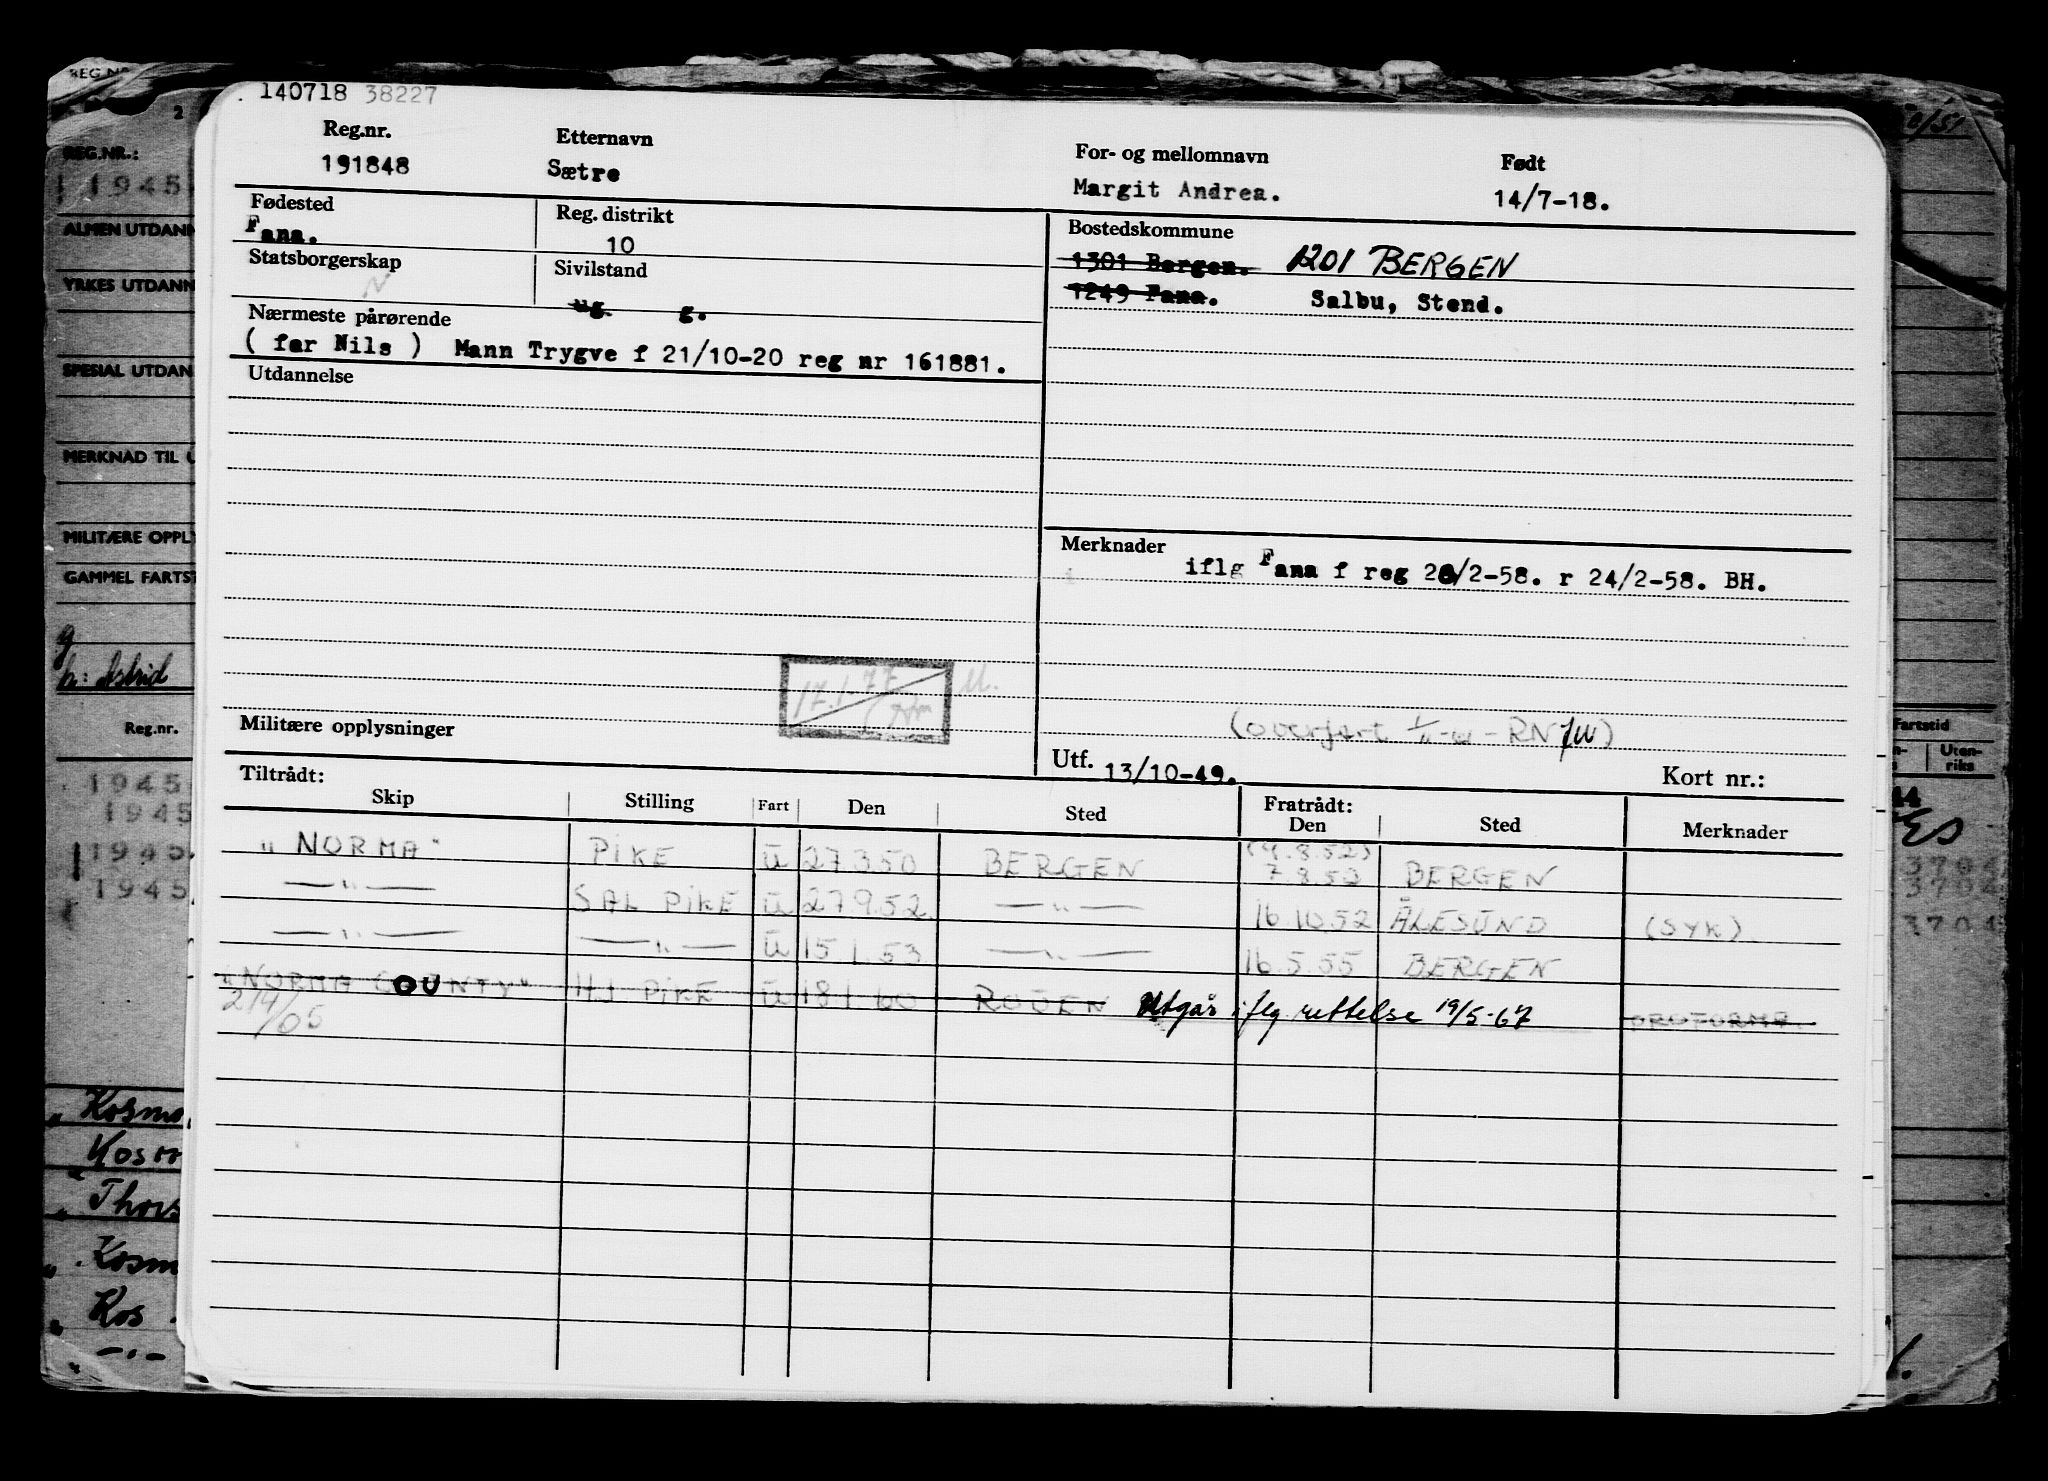 140718 38227
Reg.nr. Etternavn For- og mellomnavn Født
191848 Sætre Margit Andrea. 14/7-18.
Fødested Reg. distrikt Bostedskommune
Fana. 10 1301 Bergen. 1201 BERGEN
Statsborgerskap Sivilstand 1249 Fana. Salbu, Stend.
N ug g.
Nærmeste pårørende
( far Nils ) Mann Trygve f 21/10-20 reg nr 161881.
Utdannelse
Merknader
iflg Fana f reg 20/2-58. r 24/2-58. BH.
17.1-77
Militære opplysninger
(overført
Utf. 13/10-49. Kort nr.:
Tiltrådt: Fratrådt:
Skip Stilling Fart Den Sted Den Sted Merknader
(4.8.52)
"NORMA" PIKE U 27.3.50 BERGEN 7.8.52 BERGEN
—"— SAL PIKE U 27.9.52 —"— 16.10.52 ÅLESUND (SYK)
—"— —"— U 15.1.53 —"— 16.5.55 BERGEN
"NORMA COUNTY" HJ PIKE U 18.1.60 ROUEN Utgår iflg rettelse 19/5-67
REG.NR.:
1945
ALMEN UTDANN
YRKES UTDANN
SPESIAL UTDAN
MERKNAD TIL U
MILITÆRE OPPLY
GAMMEL FARTST
g
h: Astrid
Reg.nr.
1945
1945
1945
1945
Kosmo
Kosm
Thors
Kosm
Kos
Fartstid
Uten-
riks
3704
3704
3704